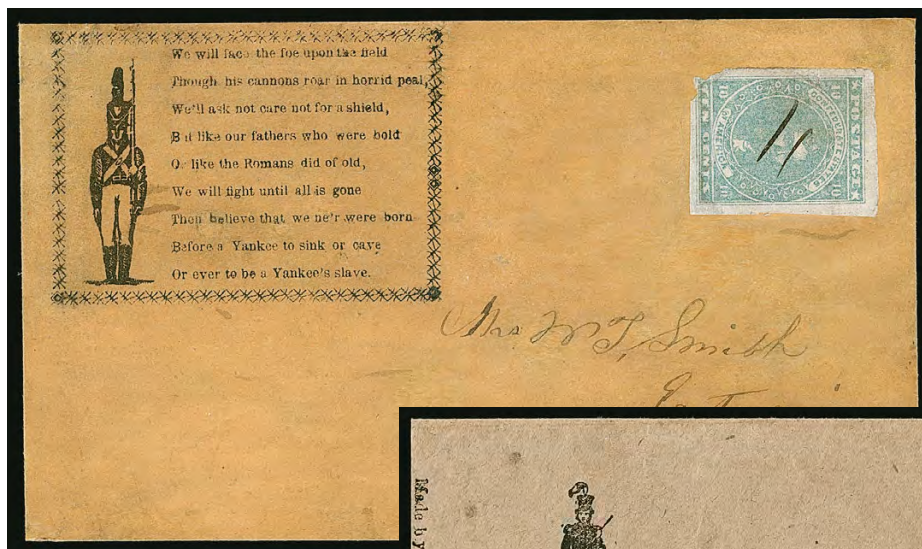 We will face the foe upon the field
Though his cannons roar in horrid peal,
We'll ask not care not for a shield,
But like our fathers who were bold
Or like the Romans did of old,
We will fight until all is gone
Then believe that we ne'r were born
Before a Yankee to sink or cave
Or ever to be a Yankee's slave.
POSTAGE
CONFEDERATE STATES
TEN CENTS
10 10
10 10
Mrs W T, Smith
Made by